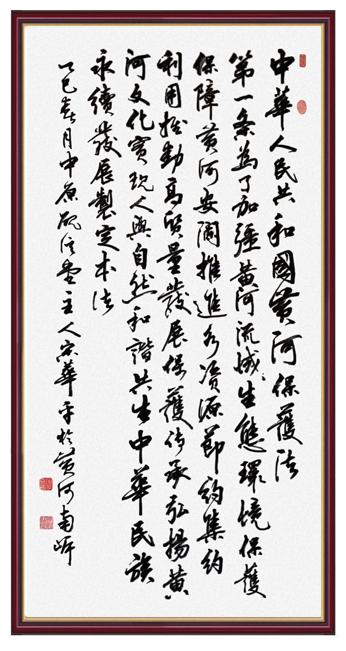 中華人民共和國黃河保護法
第一条為了加强黃河流域生態環境保護
保障黃河安瀾推進水資源節約集約
利用推動高質量發展保護傳承弘揚黃
河文化實現人與自然和諧共生中華民族
永續發展製定本法
乙巳春月中原主人宗華平於黃河南岸